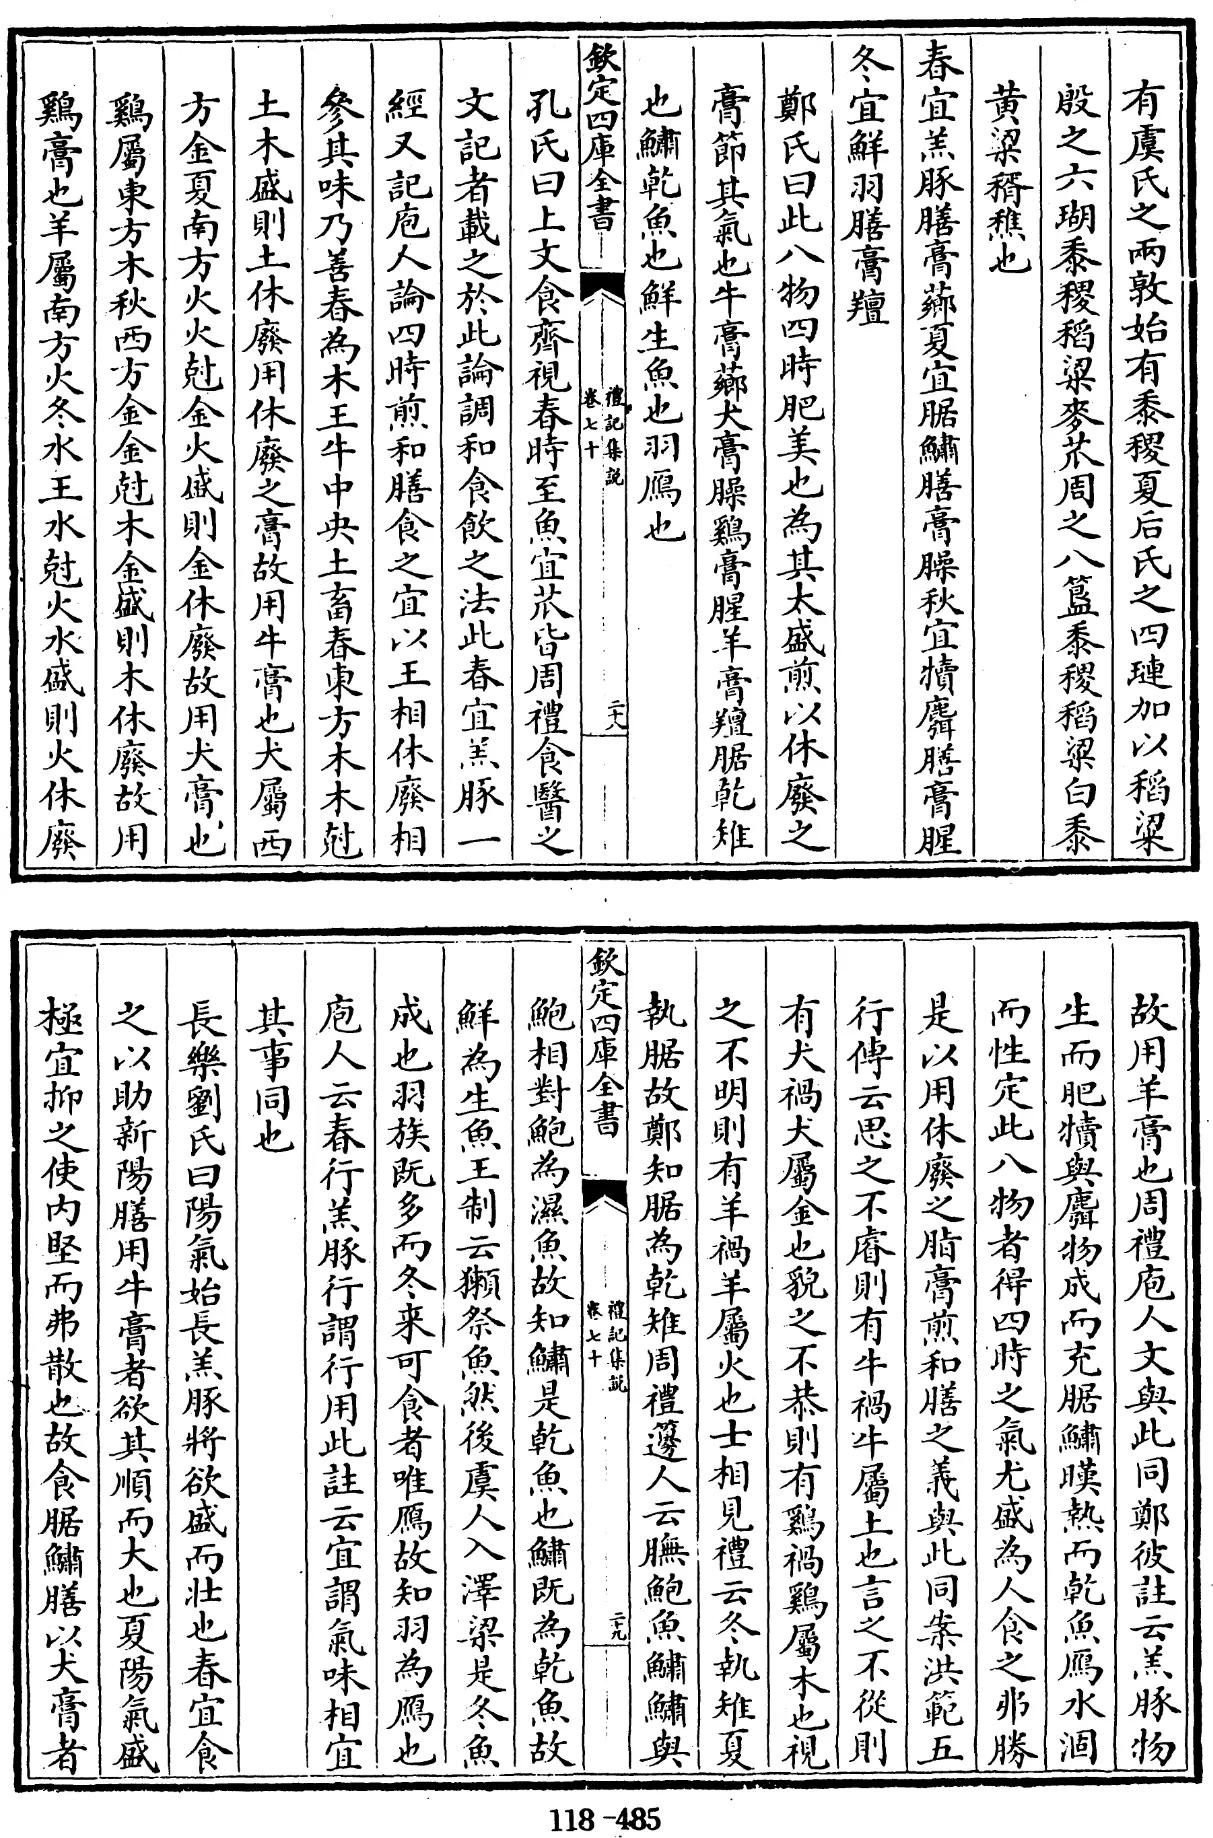 有虞氏之兩敦始有黍稷夏后氏之四璉加以稻粱
殷之六瑚黍稷稻粱麥苽周之八簋黍稷稻粱白黍
黄粱稰穛也
春宜羔豚膳膏薌夏宜腒鱐膳膏臊秋宜犢麛膳膏腥
冬宜鮮羽膳膏羶
鄭氏曰此八物四時肥美也為其太盛煎以休廢之
膏節其氣也牛膏薌犬膏臊鷄膏腥羊膏羶腒乾雉
也鱐乾魚也鮮生魚也羽鴈也
欽定四庫全書
禮記集説
卷七十
二十八
孔氏曰上文食齊視春時至魚宜苽皆周禮食醫之
文記者載之於此論調和食飲之法此春宜羔豚一
經又記庖人論四時煎和膳食之宜以王相休廢相
參其味乃善春為木王牛中央土畜春東方木木尅
土木盛則土休廢用休廢之膏故用牛膏也犬屬西
方金夏南方火火尅金火盛則金休廢故用犬膏也
鷄屬東方木秋西方金金尅木金盛則木休廢故用
鷄膏也羊屬南方火冬水王水尅火水盛則火休廢
故用羊膏也周禮庖人文與此同鄭彼註云羔豚物
生而肥犢與麛物成而充腒鱐暵熱而乾魚鴈水涸
而性定此八物者得四時之氣尤盛為人食之弗勝
是以用休廢之脂膏煎和膳之義與此同案洪範五
行傳云思之不睿則有牛禍牛屬土也言之不從則
有犬禍犬屬金也貌之不恭則有鷄禍鷄屬木也視
之不明則有羊禍羊屬火也士相見禮云冬執雉夏
執腒故鄭知腒為乾雉周禮籩人云膴鮑魚鱐鱐與
欽定四庫全書
禮記集説
卷七十
二十九
鮑相對鮑為濕魚故知鱐是乾魚也鱐既為乾魚故
鮮為生魚王制云獺祭魚然後虞人入澤梁是冬魚
成也羽族既多而冬来可食者唯鴈故知羽為鴈也
庖人云春行羔豚行謂行用此註云宜謂氣味相宜
其事同也
長樂劉氏曰陽氣始長羔豚將欲盛而壮也春宜食
之以助新陽膳用牛膏者欲其順而大也夏陽氣盛
極宜抑之使内堅而弗散也故食腒鱐膳以犬膏者
118-485